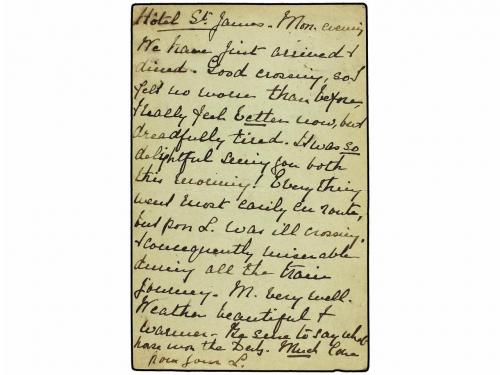 Hôtel St. James. Mon. evening
We have just arrived &
dined. Good crossing, so I
felt no worse than before,
& really feel better now, but
dreadfully tired. It was so
delightful seeing you both
this morning! Everything
went most easily en route,
but poor L. was ill crossing,
& consequently miserable
during all the train
journey. M. very well.
Weather beautiful &
warmer. Be sure to say who
have won the Much love
from your L.